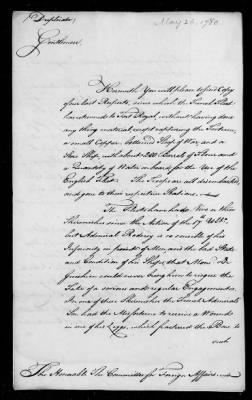 (Duplicate)
May 26, 1780.
Gentlemen
Herewith You will please to find Copy
of our last Respects, since which the French Fleet
has returned to Fort Royal, without having done
any thing material except capturing the Fortune,
a small Copper bottomed Ship of War and a
Ship, with about 200 Barrels of Flour and
a Quantity of Water on board for the Use of the
English Fleet. The Troops are all disembarked,
and gone to their respective Stations.
The Fleets have had two or three
Skirmishes since the Action of the 17th
but Admiral Rodney is so sensible of his
Inferiority in point of Men, and the bad State
and Condition of his Ships, that Monsr. De
Guichen could never bring him to risque the
Fate of a serious and regular Engagement.
In one of these Skirmishes the French Admiral's
Son had the Misfortune to receive a Wound
in one of his Leggs, which fractured the Bone to
such
The Honorable The Committee for Foreign Affairs